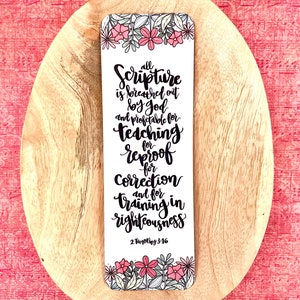 all
Scripture
is breathed out
by God
and profitable for
teaching
for
reproof
for
correction
and for
training in
righteousness
2 Timothy 3:16